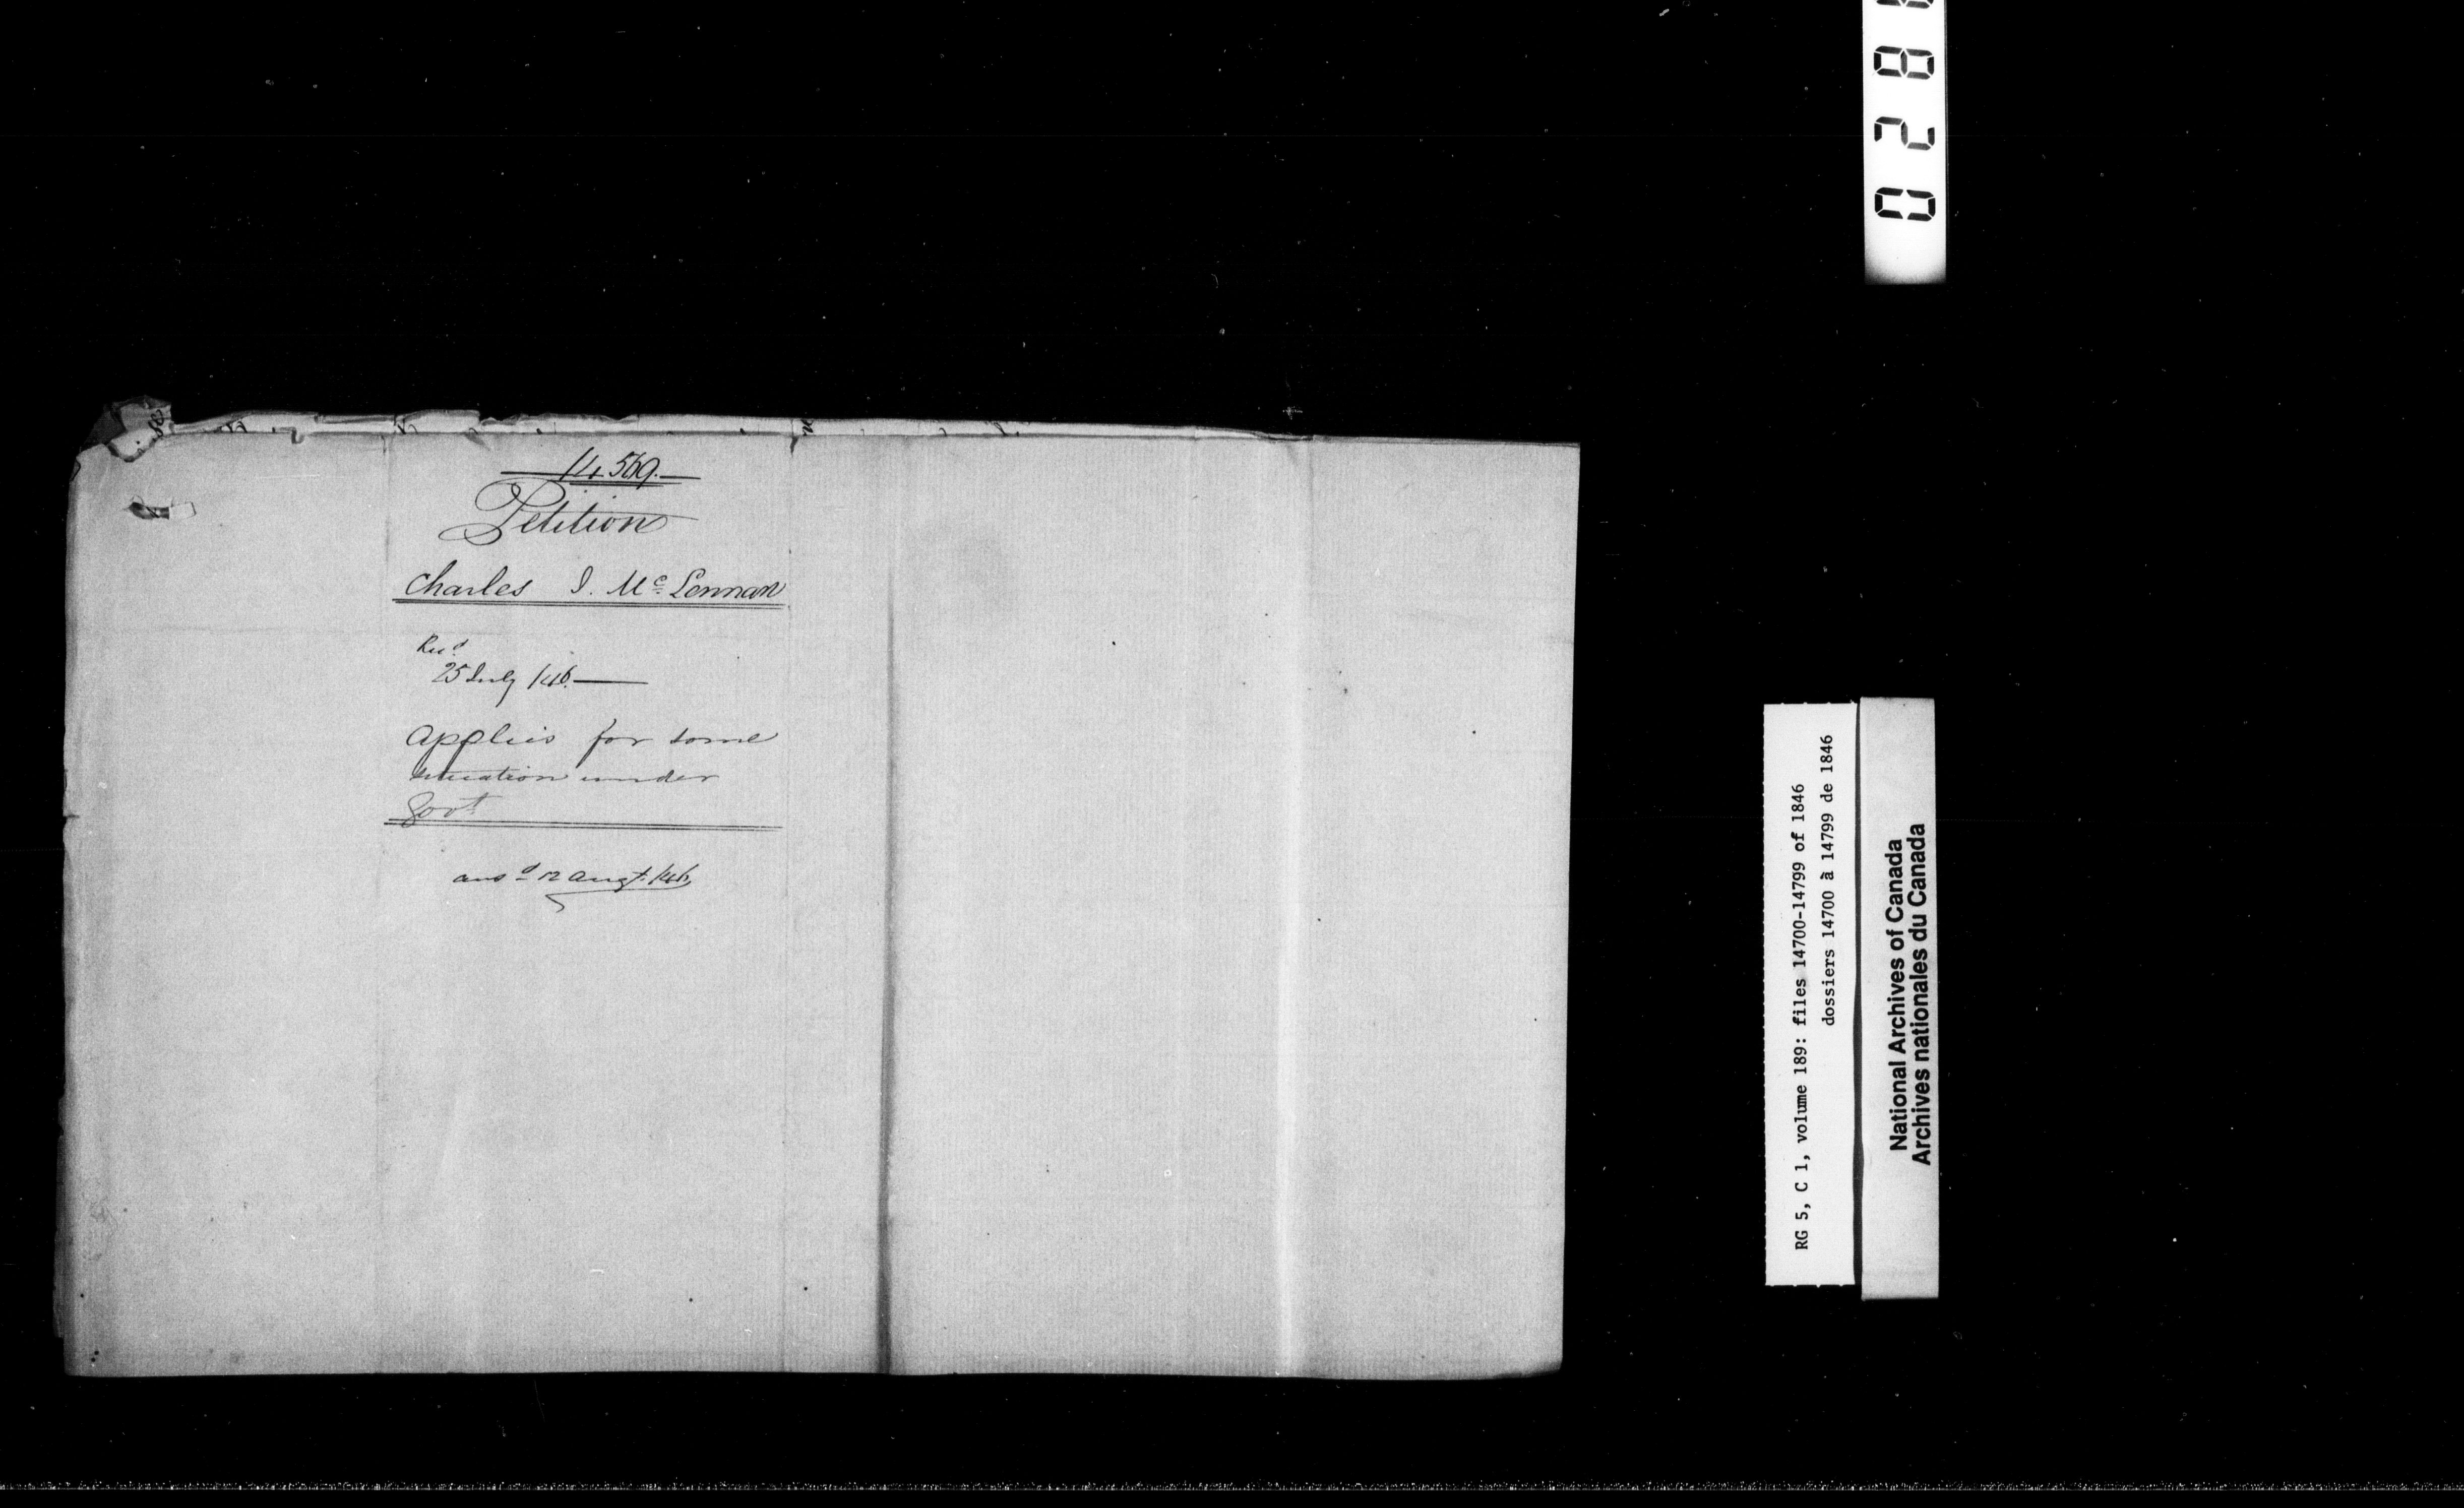 14569.
Petition
Charles J. Mc Lennan
Recd
25 July /46.
applies for some
situation under
Govt
ansd 12 Augt. /46.
028
RG 5, C 1, volume 189: files 14700-14799 of 1846
dossiers 14700 à 14799 de 1846
National Archives of Canada
Archives nationales du Canada